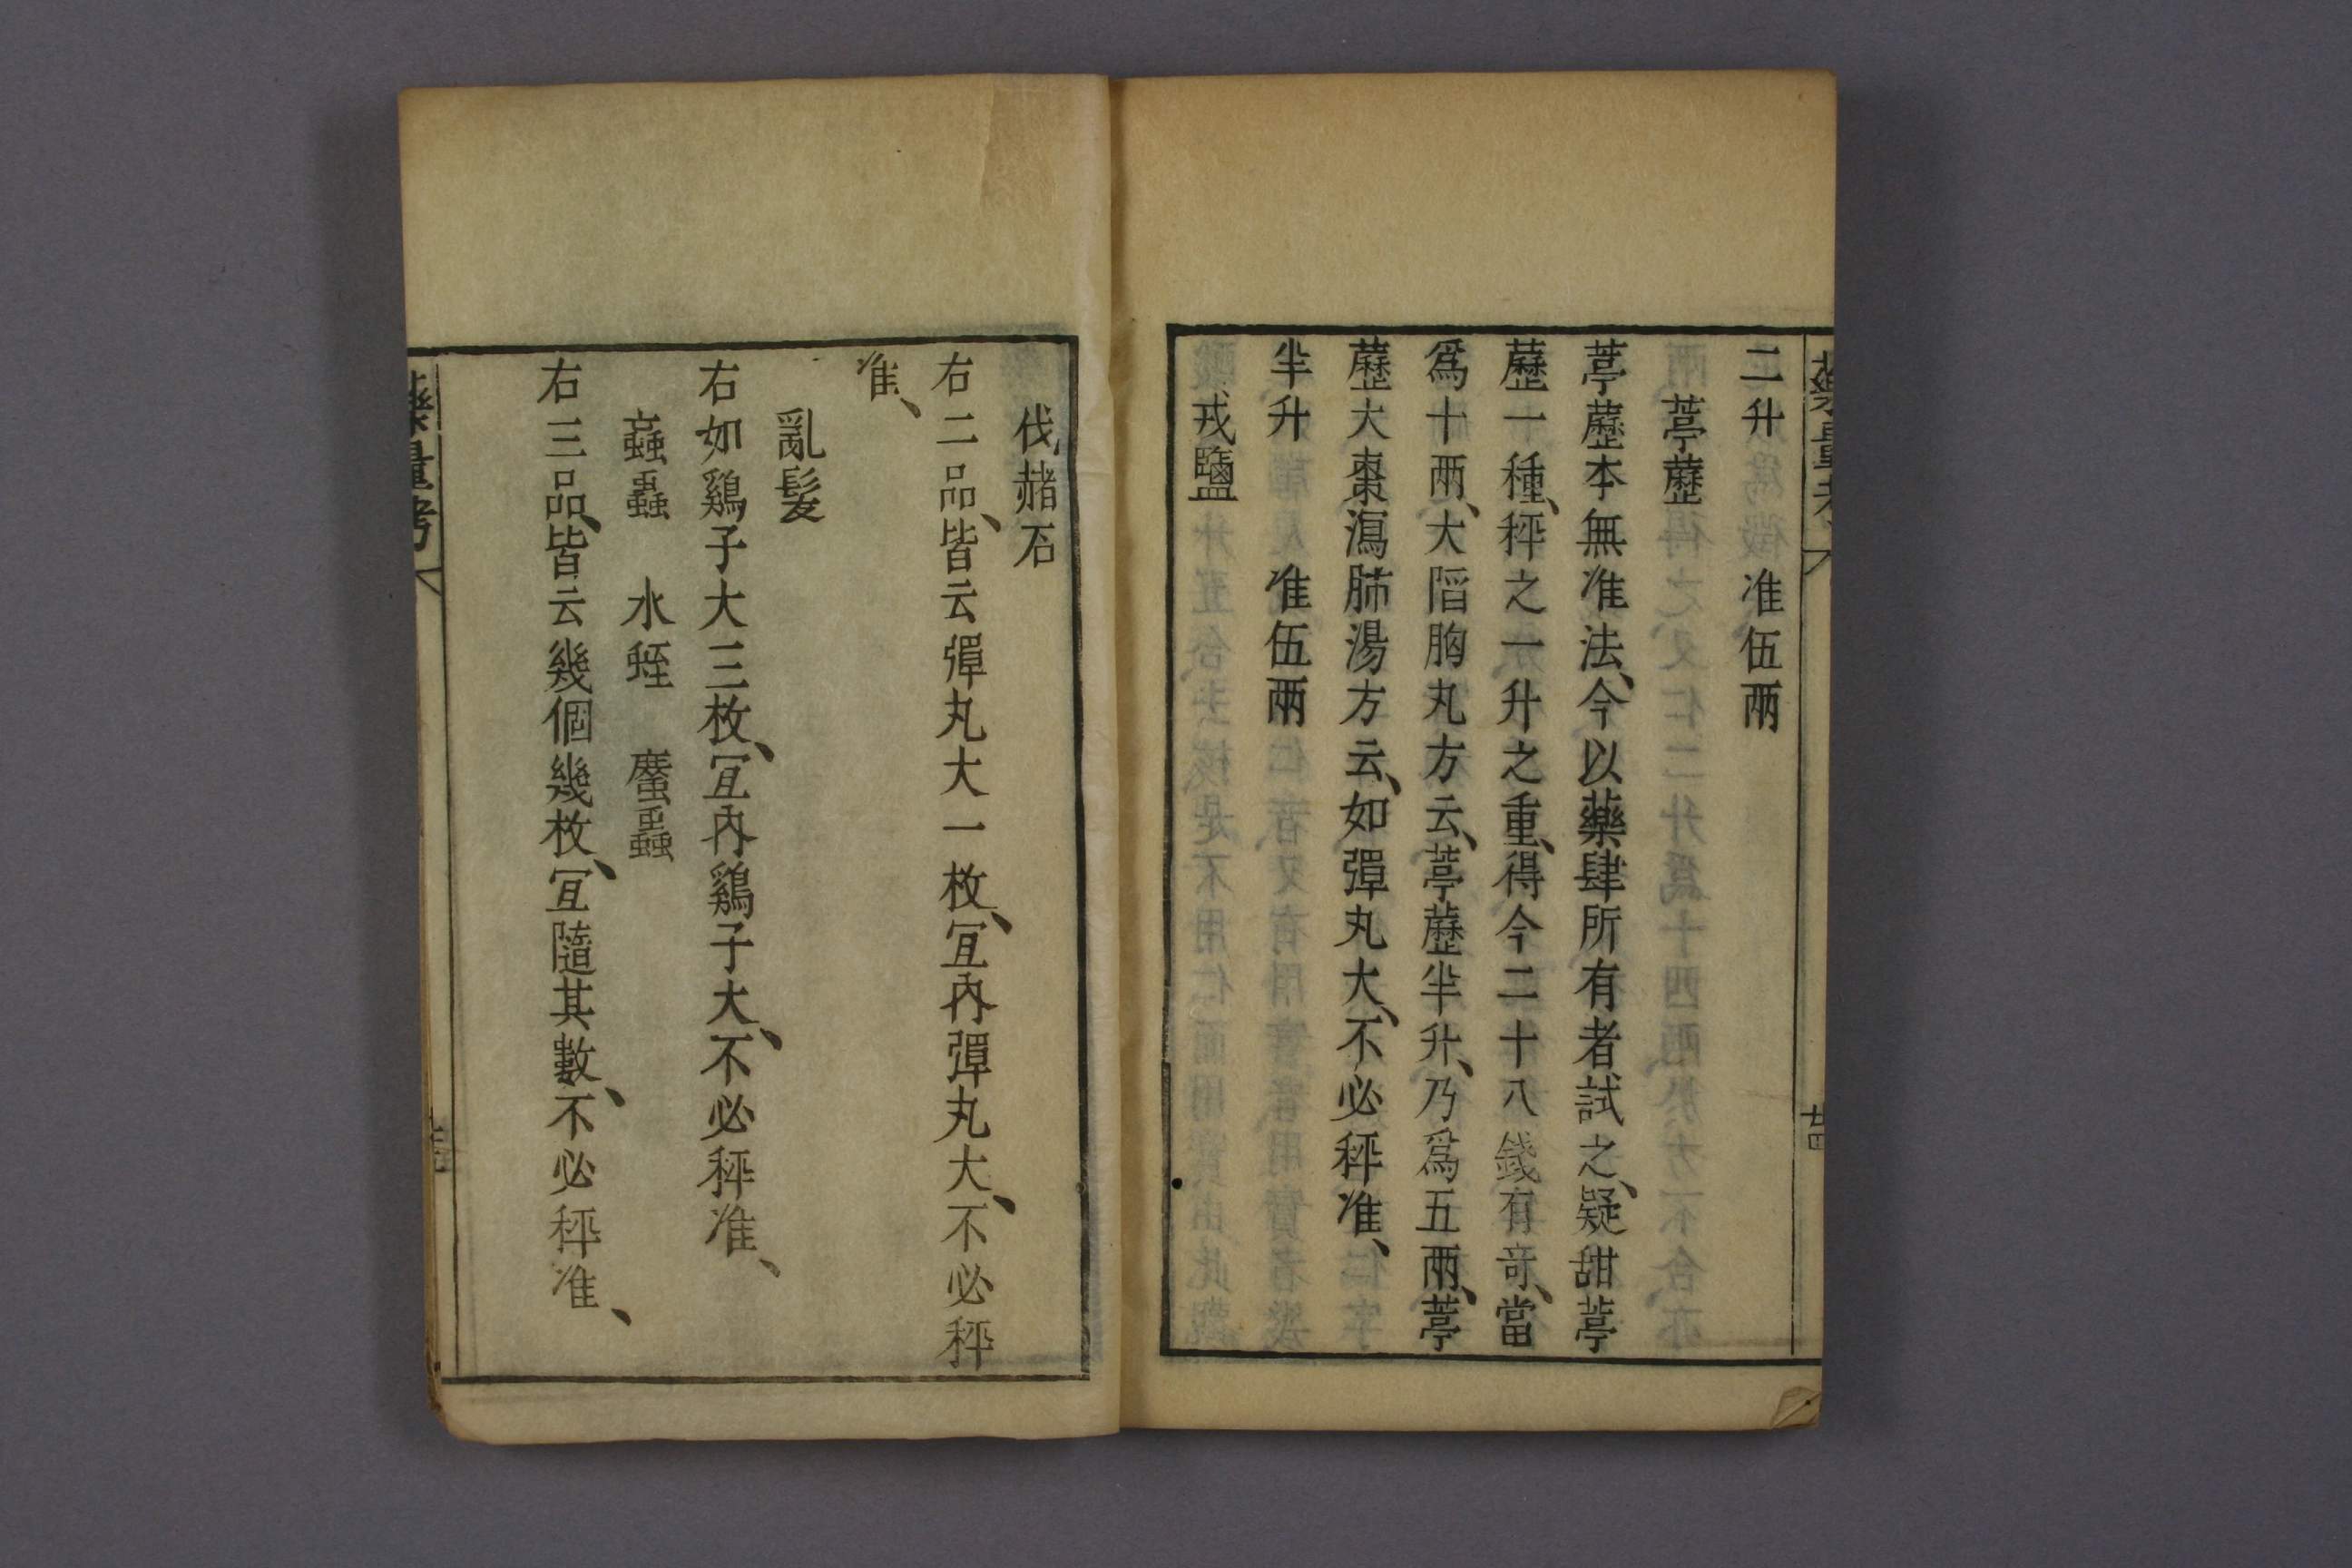 二升　准伍兩
葶藶
葶藶本無准法、今以藥肆所有者試之、疑甜葶
藶一種、秤之一升之重、得今二十八錢有奇、當
爲十兩、大陷胸丸方云、葶藶半升、乃爲五兩、葶
藶大棗瀉肺湯方云、如彈丸大、不必秤准、
半升　准伍兩
戎鹽
伐赭石
右二品、皆云彈丸大一枚、冝內彈丸大、不必秤
准、
亂髮
右如鷄子大三枚、冝內鷄子大、不必秤准、
䗪蟲　水蛭　䗪蟲
右三品、皆云幾個幾枚、冝隨其數、不必秤准、
藥量考